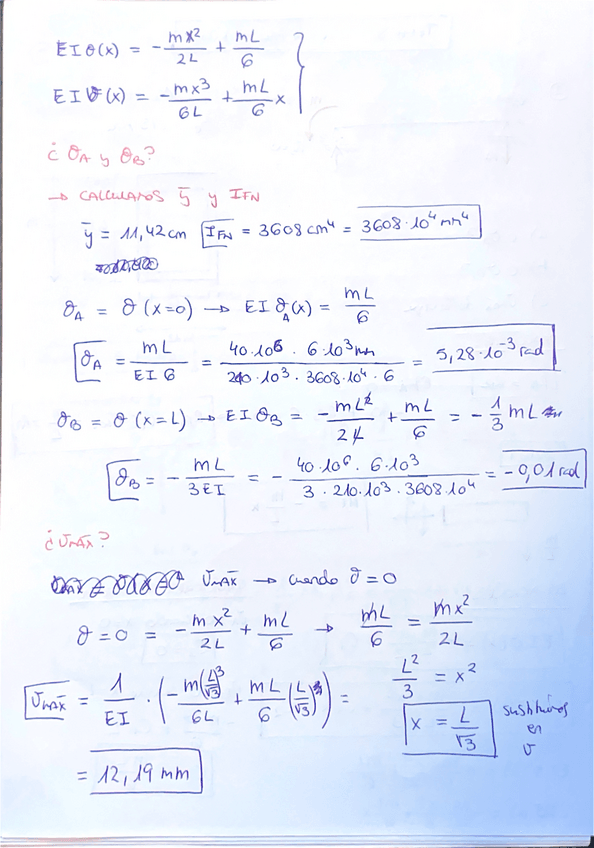 EIθ(x) = - mx²/2L + mL/6
EIv(x) = - mx³/6L + mL/6 x
¿ θA y θB?
→ CALCULAMOS ȳ y IFN
ȳ = 11,42 cm IFN = 3608 cm⁴ = 3608·10⁴ mm⁴
θA = θ (x=0) → EI θA(x) = mL/6
θA = mL/EI6 = 40·10⁶ · 6·10³mm / 210·10³ · 3608·10⁴ · 6 = 5,28·10⁻³ rad
θB = θ (x=L) → EI θB = - mL²/2L + mL/6 = - 1/3 mL
θB = - mL/3EI = - 40·10⁶ · 6·10³ / 3 · 210·10³ · 3608·10⁴ = -0,01 rad
¿vMÁX?
vMÁX → cuando θ=0
θ=0 = - mx²/2L + mL/6 → mL/6 = mx²/2L
L²/3 = x²
x = L/√3 sustituimos en v
vMÁX = 1/EI · (- m(L/√3)³/6L + mL/6 (L/√3)) =
= 12,19 mm